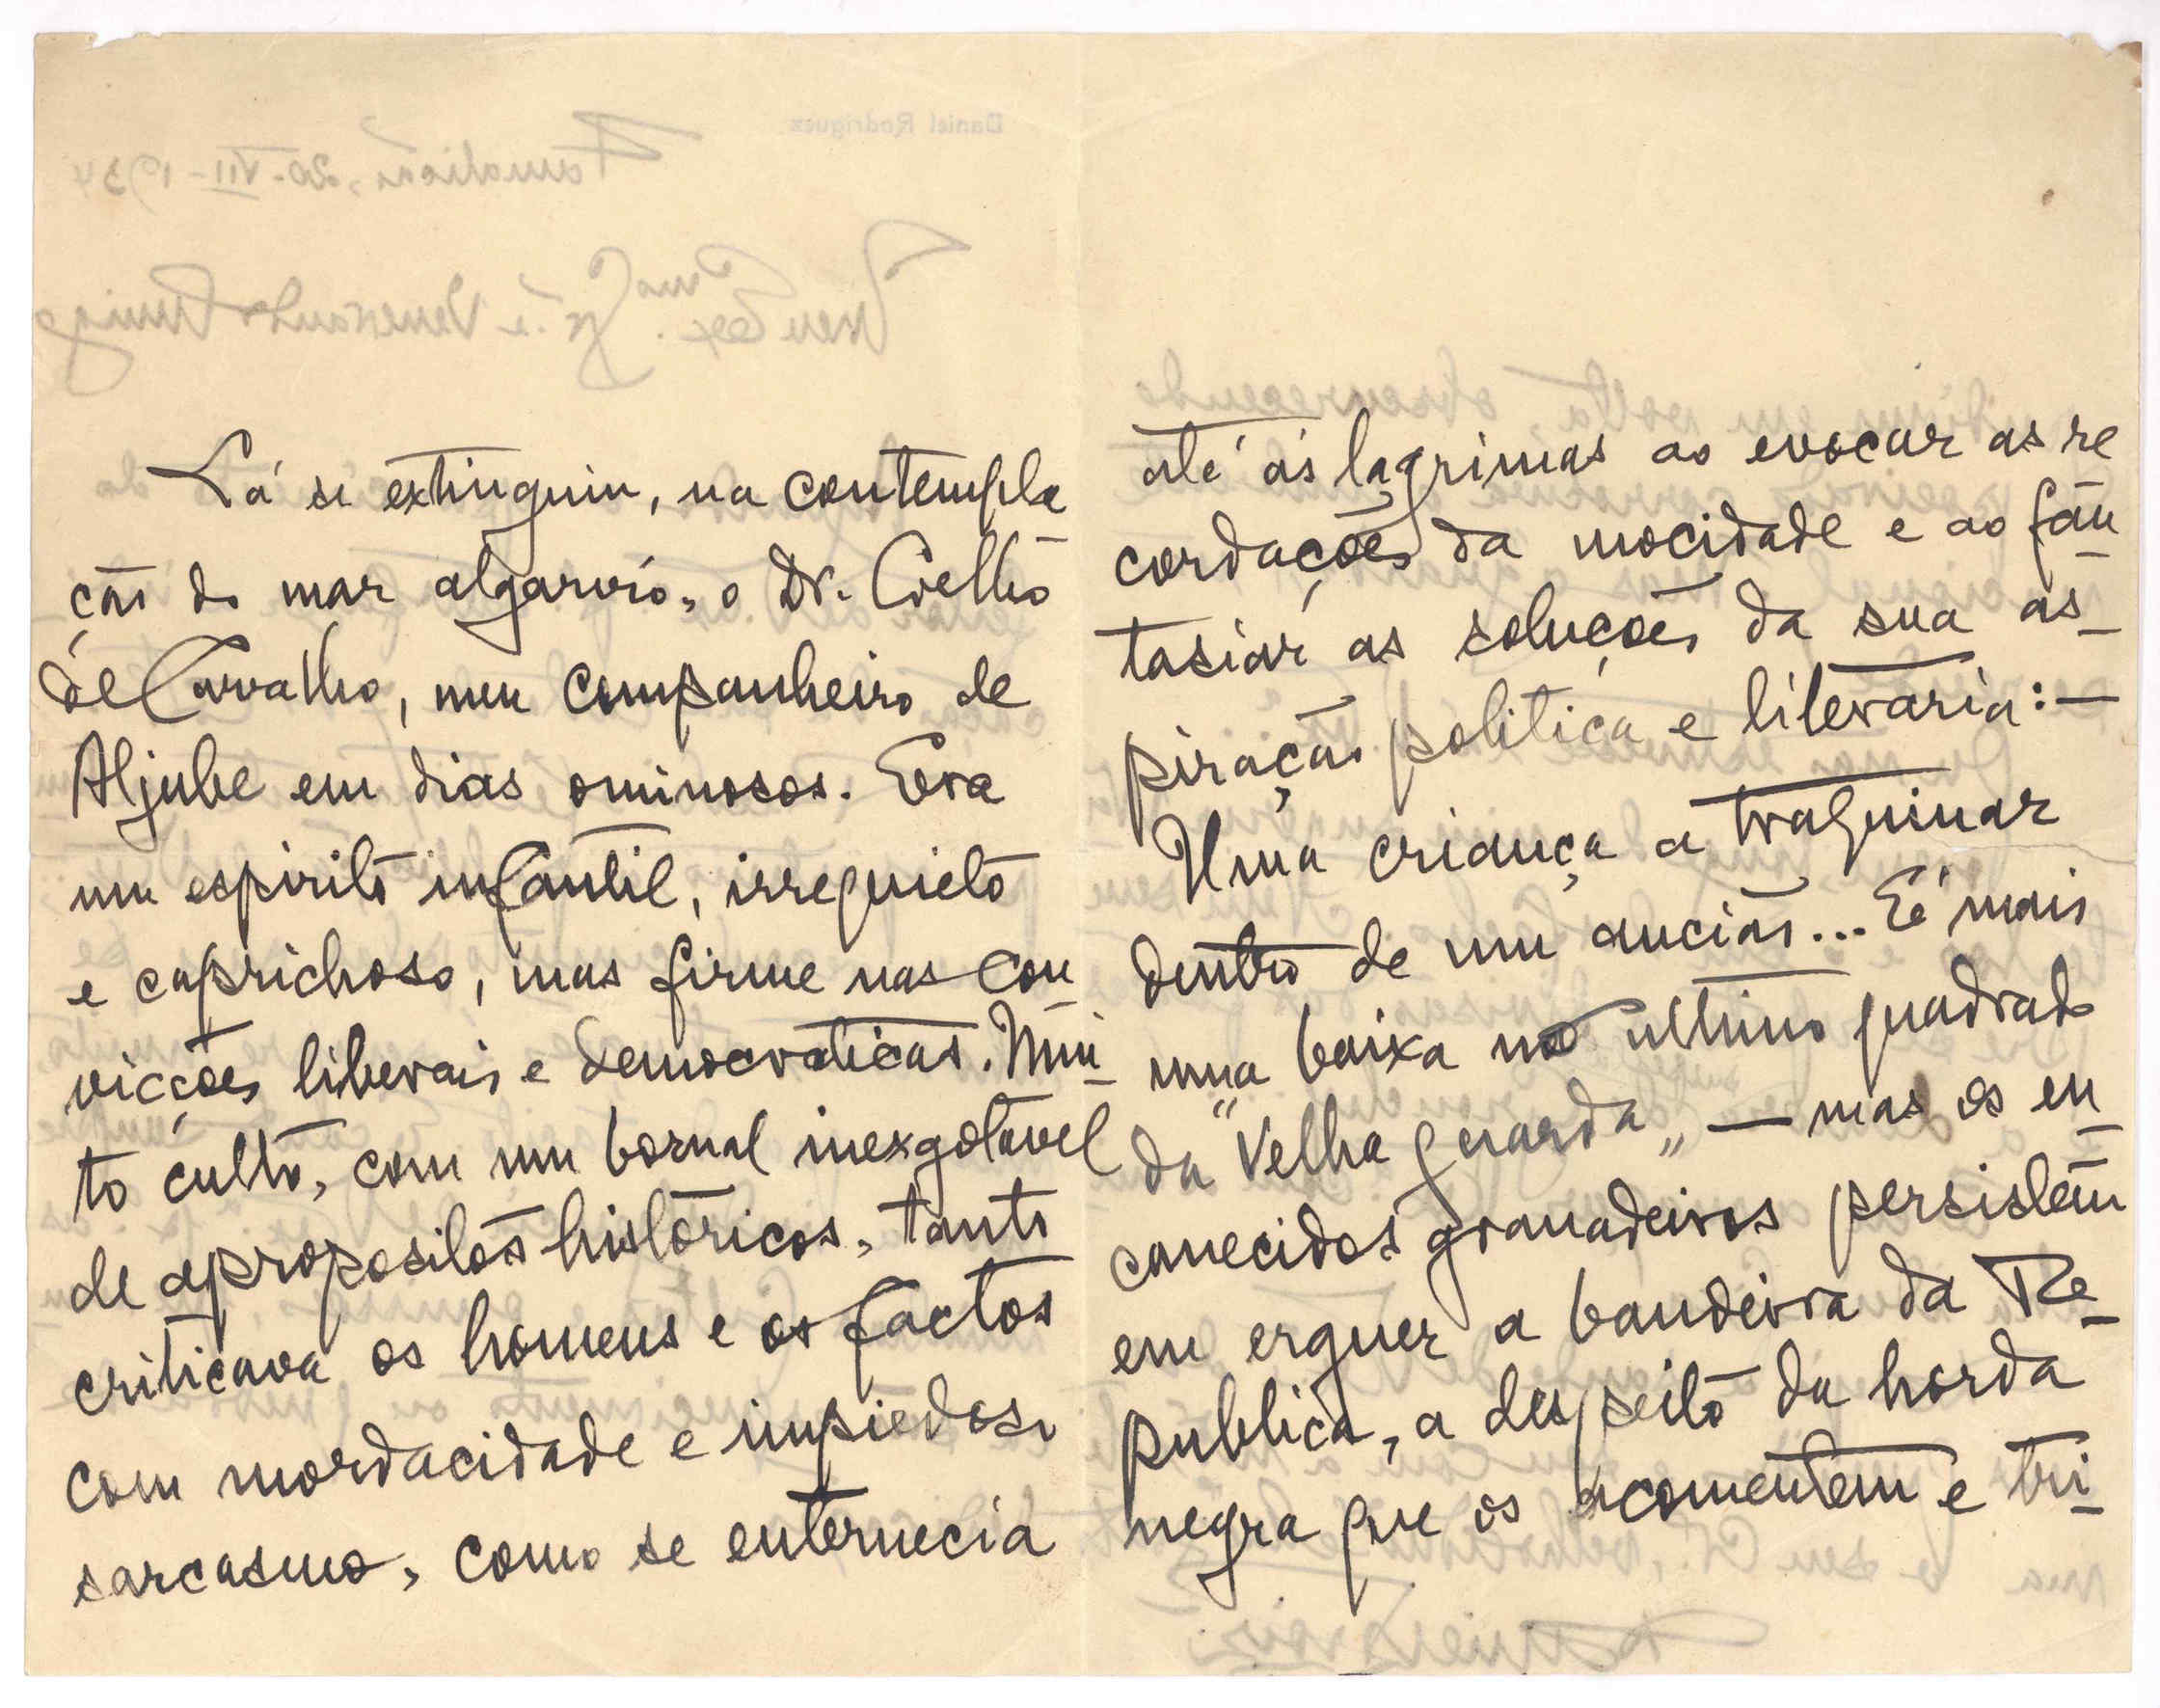 Lá se extinguiu, na contempla
ção do mar algarvio, o Dr. Coelho
de Carvalho, meu companheiro de
Aljube em dias ominosos. Era
um espirito infantil, irrequieto
e caprichoso, mas firme nas con
vicções liberais e democraticas. Mui-
to culto, com um bornal inexgotavel
de apropositos históricos, tanto
criticava os homens e os factos
com mordacidade e impiedoso
sarcasmo, como se enternecia
até ás lagrimas ao evocar as re
cordações da mocidade e ao fan-
tasiar as soluções da sua as-
piração politica e literaria: —
Uma criança a traquinar
dentro de um ancião... É mais
uma baixa no ultimo quadrado
da "Velha guarda„ — mas os en-
canecidos granadeiros persistem
em erguer a bandeira da Re-
publica, a despeito da horda
negra que os acometem e tri-
Daniel Rodrigues
Famalicão, 20-VII-1934
Meu Ex.mo Sr. e Venerando Amigo